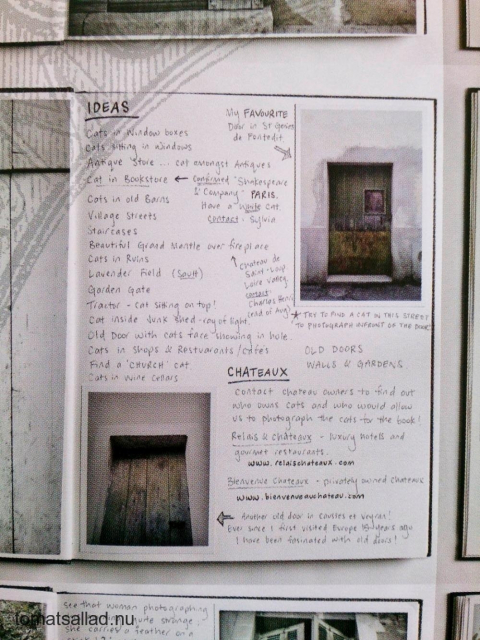 IDEAS
Cats in Window boxes
Cats sitting in windows
Antique Store ... cat amongst Antiques
Cat in Bookstore ← confirmed "Shakespeare
& Company" PARIS.
Have a white cat
contact: Sylvia
Cats in old Barns
Village Streets
Staircases
Beautiful Grand Mantle over fireplace
Cats in Ruins
Lavender Field (Sault)
Garden Gate
Tractor - cat sitting on top!
Cat inside Junk shed - ray of light.
Old Door with cats face showing in hole.
Cats in Shops & Restaurants/cafés
Find a 'CHURCH' cat
Cats in Wine Cellars
My FAVOURITE
Door in St
de
Chateau de
Saint-Loup
Loire Valley
contact:
Charles Henri
(end of Aug)
* TRY TO FIND A CAT IN THIS STREET
TO PHOTOGRAPH INFRONT OF THE DOOR
OLD DOORS
WALLS & GARDENS
CHATEAUX
Contact chateau owners to find out
who owns cats and who would allow
us to photograph the cats for the book!
Relais & Châteaux - luxury hotels and
gourmet restaurants.
www.relaischateaux.com
Bienvenue Chateaux - privately owned chateaux
www.bienvenueauchateau.com
Another old door in
Ever since I first visited Europe years ago
I have been fasinated with old doors!
see that woman photographing
quite strange
she carries a feather on a
tomatsallad.nu